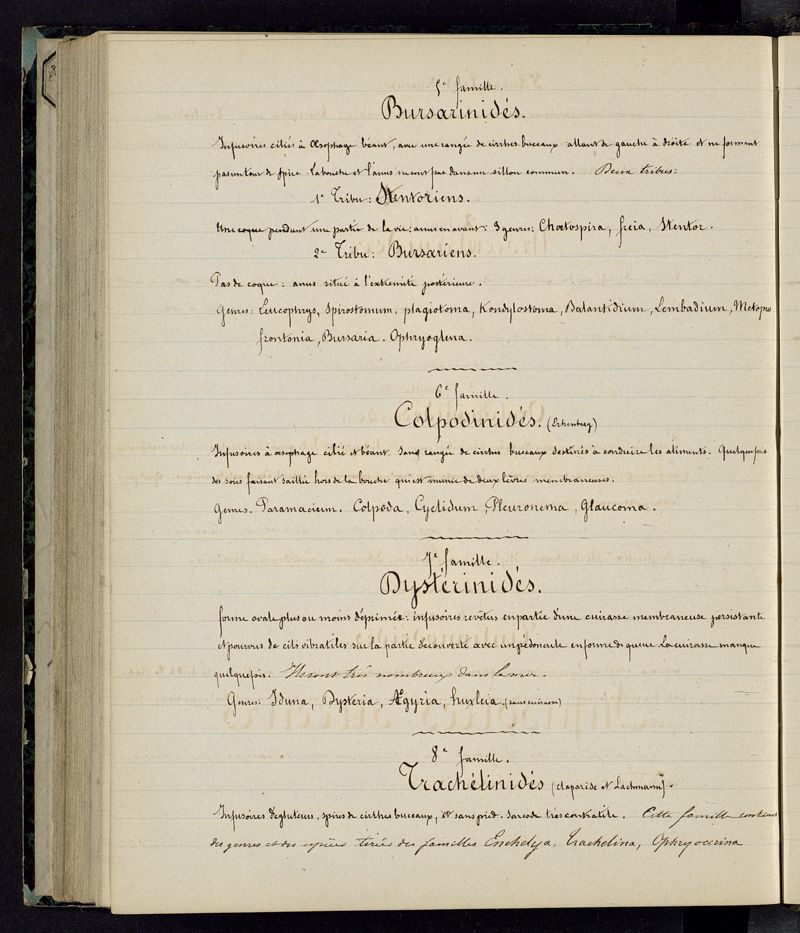 5e famille.
Bursarinidés.
Infusoires ciliés à œsophage béant, avec une rangée de cirrhes buccaux allant de gauche à droite et ne formant
pas un tour de spire. La bouche et l'anus ne sont pas dans un sillon commun. Deux tribus:
1e Tribu: Stentoriens.
Une coque pendant une partie de la vie: anus en avant: 3 genres: Chætospira, freia, Stentor.
2e Tribu: Bursariens.
Pas de coque: anus situé à l'extrémité postérieure.
Genres: Leucophrys, Spirostomum, plagiotoma, Kondylostoma, Balantidium, Lembadium, Metopus
frontonia, Bursaria. Ophryoglena.
6e famille.
Colpodinidés. (Erhenberg)
Infusoires à œsophage cilié et béant. Sans rangée de cirrhes buccaux destinés à conduire les aliments. Quelquefois
des soies faisant saillie hors de la bouche qui est munie de deux lèvres membraneuses.
Genres. Paramæcium. Colpoda, Cyclidum, Pleuronema, Glaucoma.
7e famille.
Dystérinidés.
forme ovale plus ou moins déprimée: infusoires revêtus en partie d'une cuirasse membraneuse persistante
et pourvus de cils vibratiles sur la partie découverte avec un pédoncule en forme de queue. La cuirasse manque
quelquefois. Ils sont très nombreux dans la mer.
Genres: Iduna, Dysteria, Ægyria, huxleia (sans cuirasse)
8e famille.
Trachélinidés (claparède et Lachmann).
Infusoires dégluteurs, spires de cirrhes buccaux, et sans pied. Sarcode très contratile. Cette famille contient
des genres et des espèces tirées des familles Enchelya, Trachelina, Ophryocerina